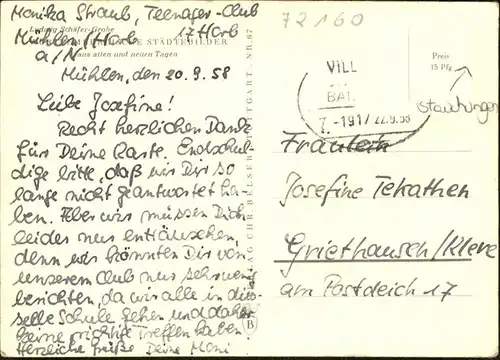 Monika Straub, Teenager-Club
Mühlen/Horb 17 Horb
Ludwig Schäfer-Grohe
STÄDTEBILDER
a/N.
aus alten und neuen Tagen
Mühlen, den 20.9.58
Liebe Josefine!
Recht herzlichen Dank
für Deine Karte. Entschul-
dige bitte, daß wir Dir so
lange nicht geantwortet ha-
ben. Aber wir müssen Dich
leider nur enttäuschen,
denn wir könnten Dir von
unserem Club nur sehr wenig
berichten, da wir alle in die-
selbe Schule gehen und daher
keine richtige Treffen haben
Herzliche Grüße Deine Moni
VERLAG CHR. BELSER STUTTGART NR. 87
B
72160
Preis
15 Pfg.
VILL
BAL
7.-1917 22.9.58
Fräulein
Josefine Tekathen
Griethausen/Kleve
am Postdeich 17